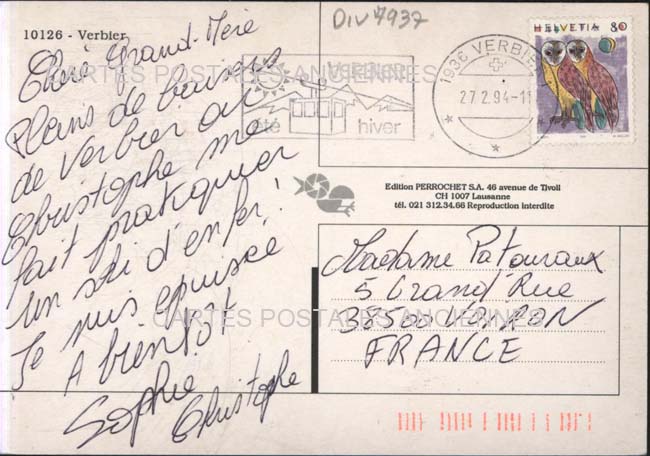 10126 - Verbier
Div 7937
Chère Grand-Mère
Pleins de baisers
de Verbier où
Christophe me
fait pratiquer
un ski d'enfer!
Je suis épuisée
A bientôt
Sophie
Christophe
VERBIER
été hiver
1936 VERBIER
27.2.94-11
HELVETIA 80
CARTES POSTALES ANCIENNES
Edition PERROCHET S.A. 46 avenue de Tivoli
CH 1007 Lausanne
tél. 021 312.34.66 Reproduction interdite
Madame Patouraux
5 Grand'Rue
38500 VOIRON
FRANCE
CARTES POSTALES ANCIENNES